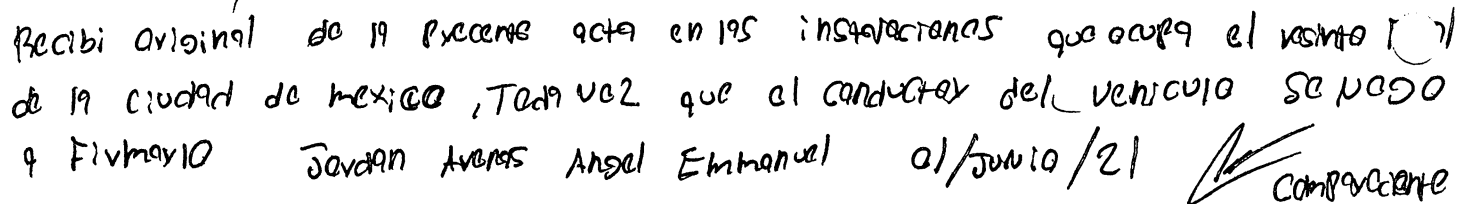 Recibi original de la presente acta en las instalaciones que ocupa el resinto
de la ciudad de mexico, Toda vez que el conductor del vehiculo se nego
a Firmarlo Jordan Arenas Angel Emmanuel 01/JUNIO/21
compareciente